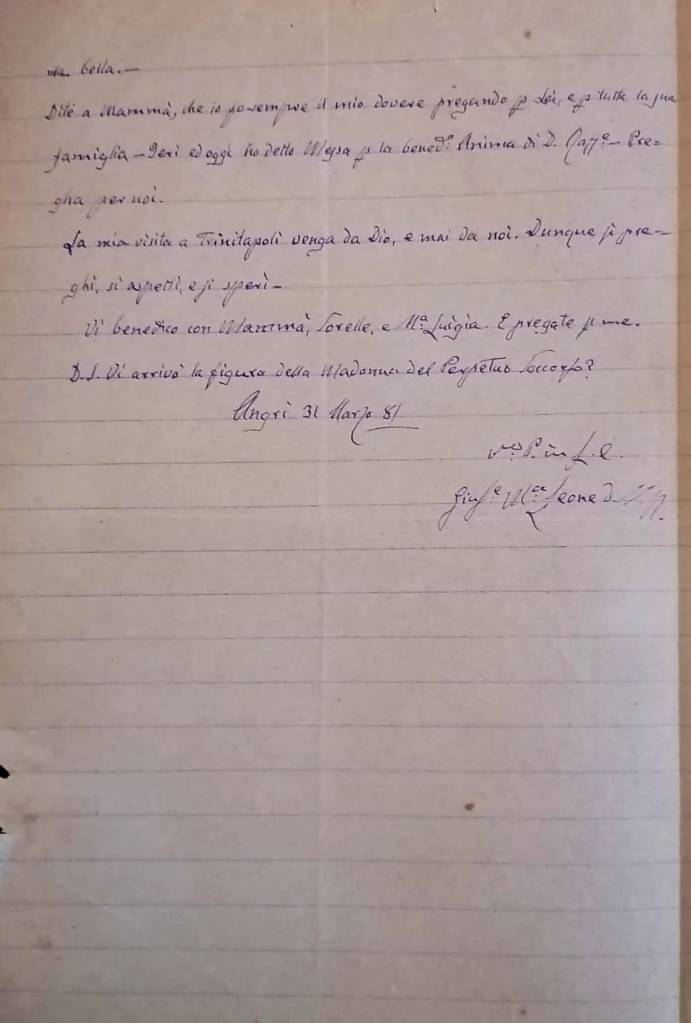 bella.—
Dite a Mammà, che io fo sempre il mio dovere pregando p Lei, e p tutta la sua
famiglia — Ieri ed oggi ho detto Messa p la bened.ª Anima di D. Raff.ᵉ — Pre=
gha per noi.
La mia visita a Trinitapoli venga da Dio, e mai da noi. Dunque si pre—
ghi, si aspetti, e si speri —
Vi benedico con Mammà, Sorelle, e M.ª Luigia. E pregate p me.
D.S. Vi arrivò la figura della Madonna del Perpetuo Soccorso?
Angri 31 Marzo 81
V.ʳᵒ P. in G. C.
Gius.ᵉ M.ª Leone d.